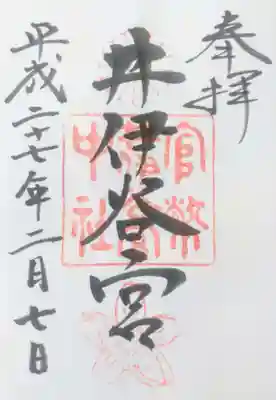 奉拝
井伊谷宮
官幣中社
平成二十七年二月七日